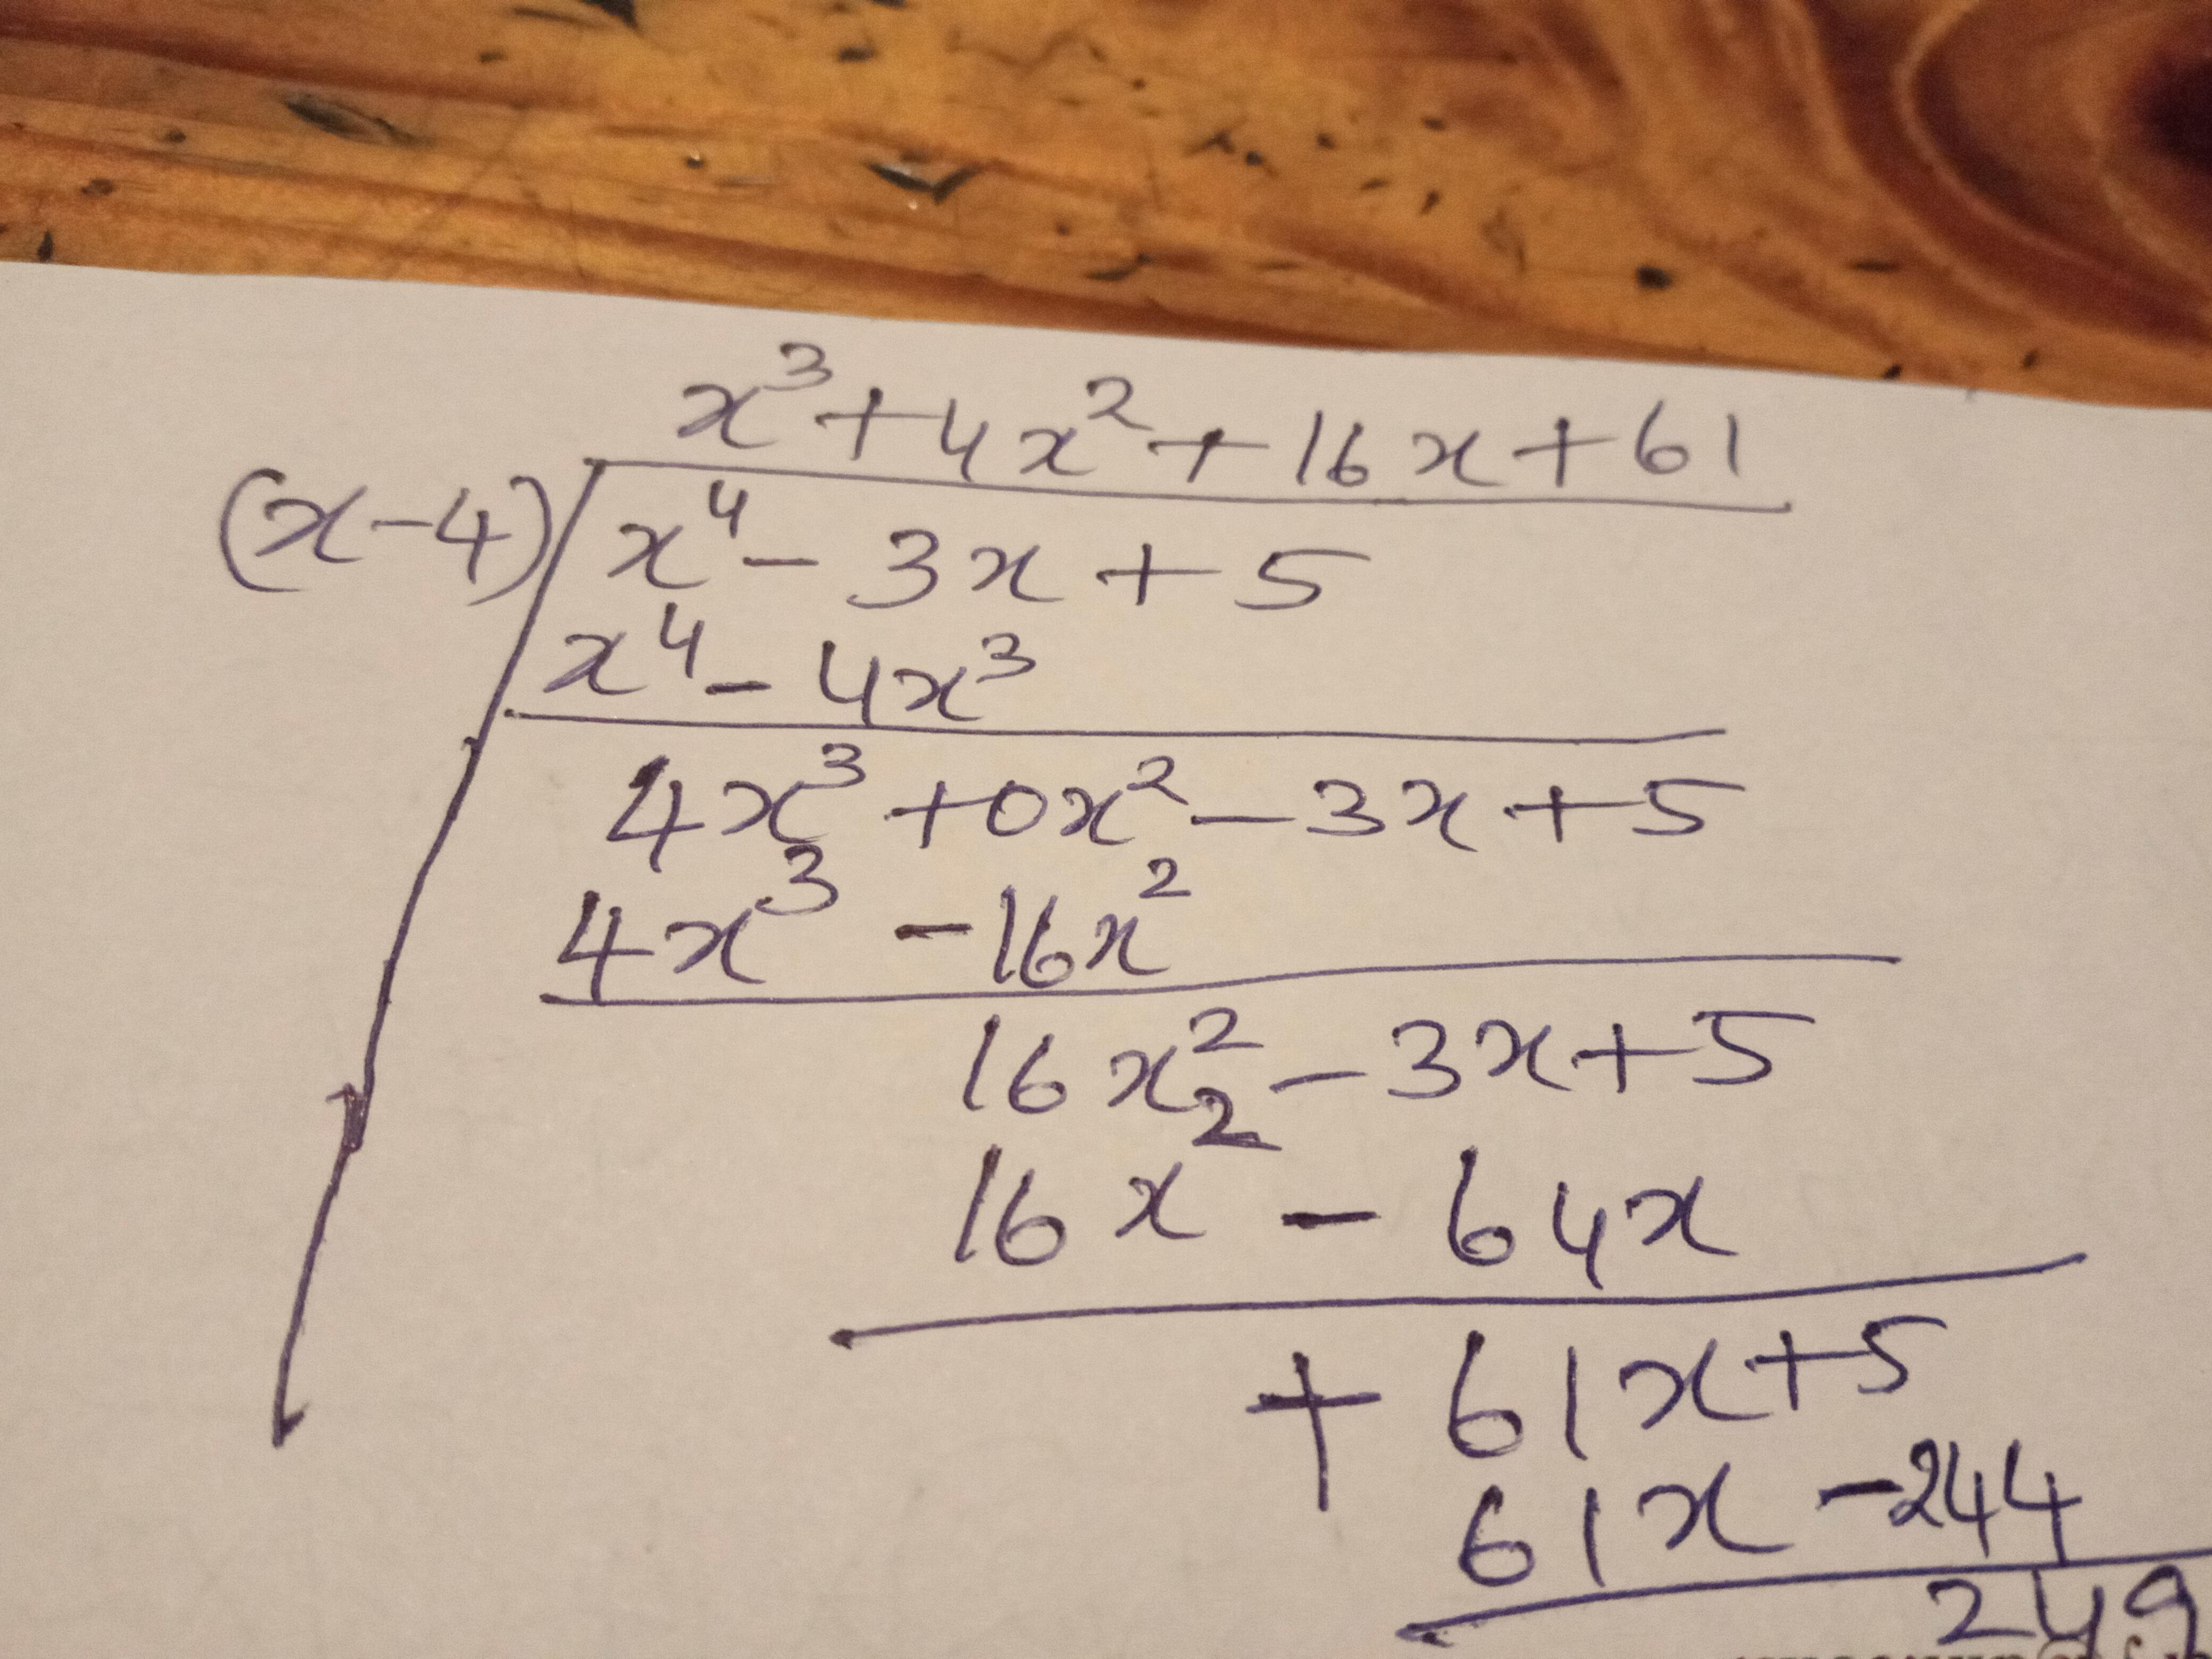 x³ + 4x² + 16x + 61
(x-4) x⁴ - 3x + 5
x⁴ - 4x³
4x³ + 0x² - 3x + 5
4x³ - 16x²
16x² - 3x + 5
16x² - 64x
+ 61x + 5
61x - 244
249